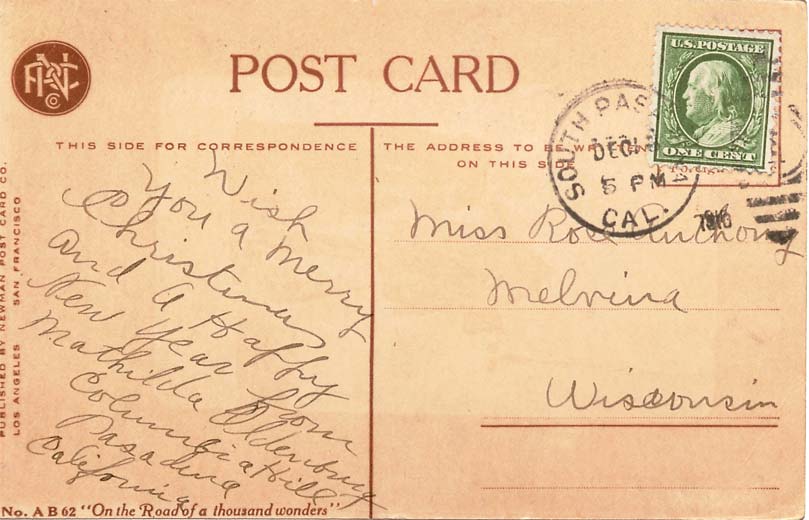 POST CARD
THIS SIDE FOR CORRESPONDENCE
THE ADDRESS TO BE WRITTEN
ON THIS SIDE
U.S. POSTAGE
ONE CENT
SOUTH PAS
DEC
5 PM
CAL.
Wish
You a Merry
Christmas
and a Happy
New Year from
Mathilda Oldenburg
Columbia Hill
Pasadena
California
Miss Rose Anthony
Melvina
Wisconsin
PUBLISHED BY NEWMAN POST CARD CO.
LOS ANGELES SAN FRANCISCO
No. A B 62 "On the Road of a thousand wonders"